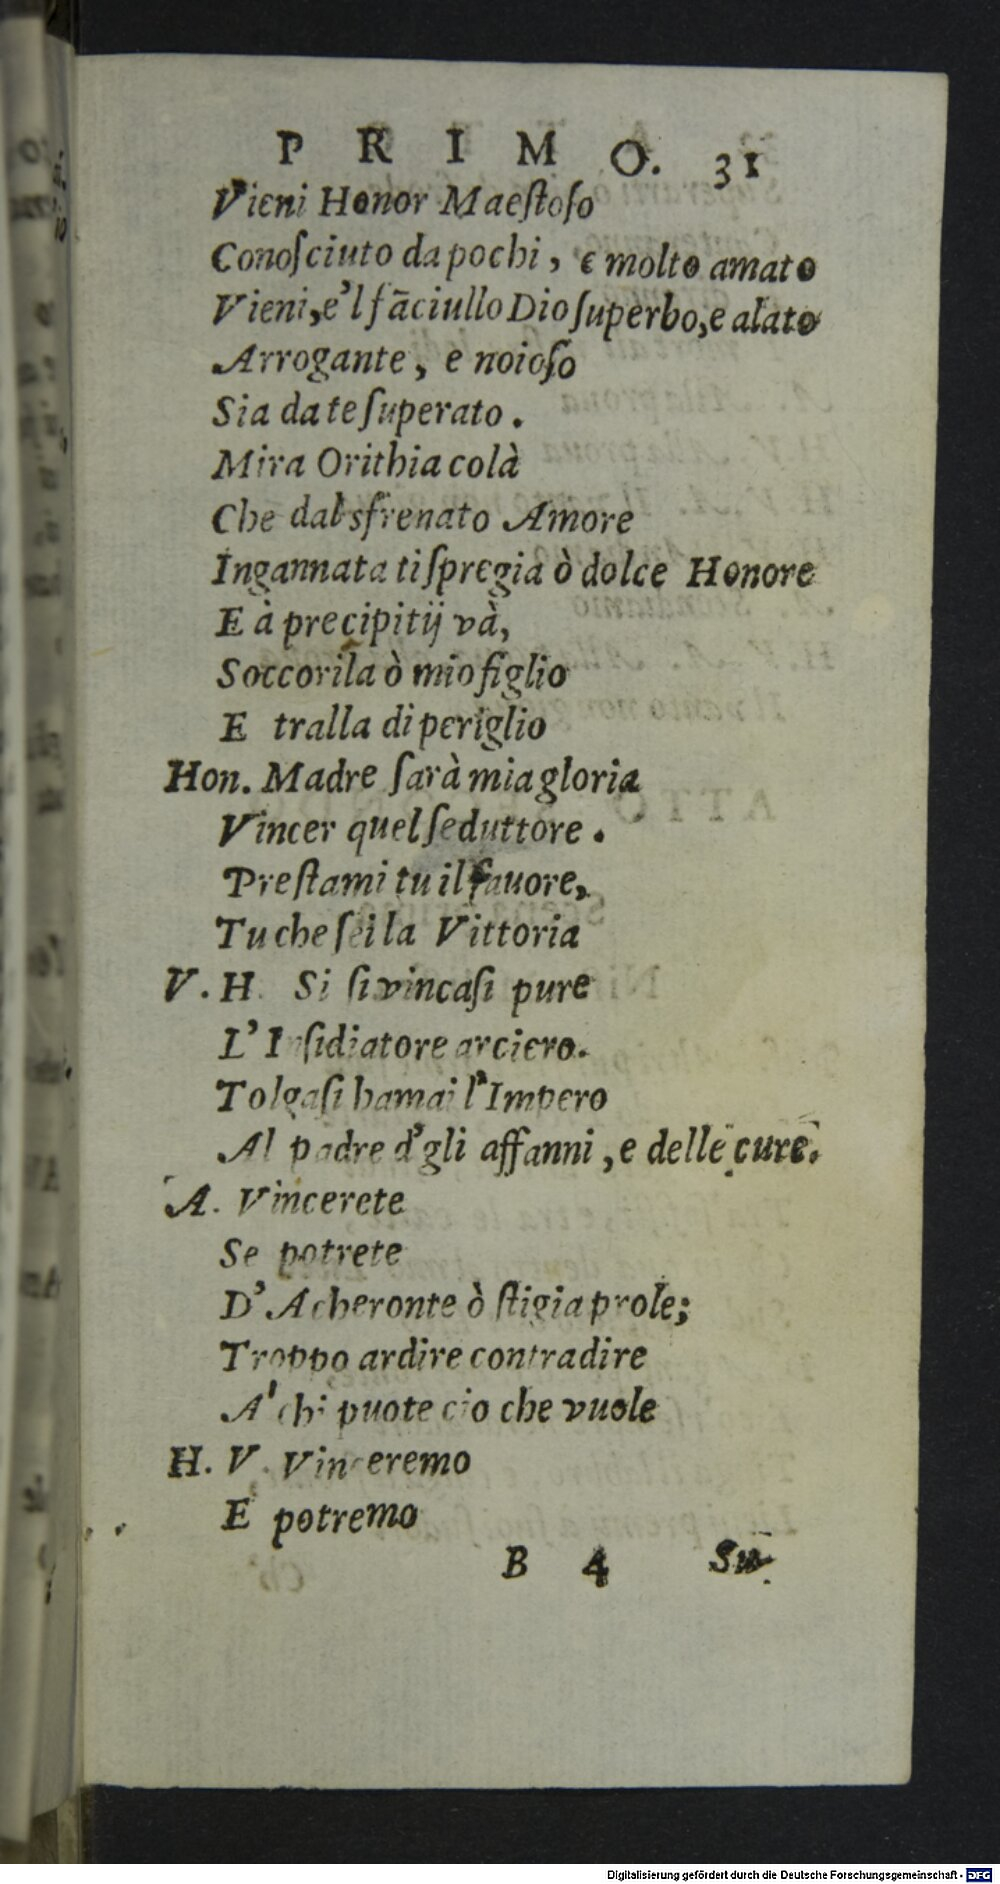 PRIMO. 31
Vieni Honor Maeſtoſo
Conoſciuto da pochi, e molto amato
Vieni, e'l fāciullo Dio ſuperbo, e alato
Arrogante, e noioſo
Sia da te ſuperato.
Mira Orithia colà
Che dal sfrenato Amore
Ingannata ti ſpregia ò dolce Honore
E à precipitij và,
Soccorila ò mio figlio
E tralla di periglio
Hon. Madre ſarà mia gloria
Vincer quel ſeduttore.
Preſtami tu il fauore,
Tu che ſei la Vittoria
V. H. Si ſi vincaſi pure
L'Inſidiatore arciero.
Tolgaſi hamai l'Impero
Al padre d'gli affanni, e delle cure.
A. Vincerete
Se potrete
D'Acheronte ò ſtigia prole;
Troppo ardire contradire
A' chi puote cio che vuole
H. V. Vinceremo
E potremo
B 4 Su
Digitalisierung gefördert durch die Deutsche Forschungsgemeinschaft - DFG